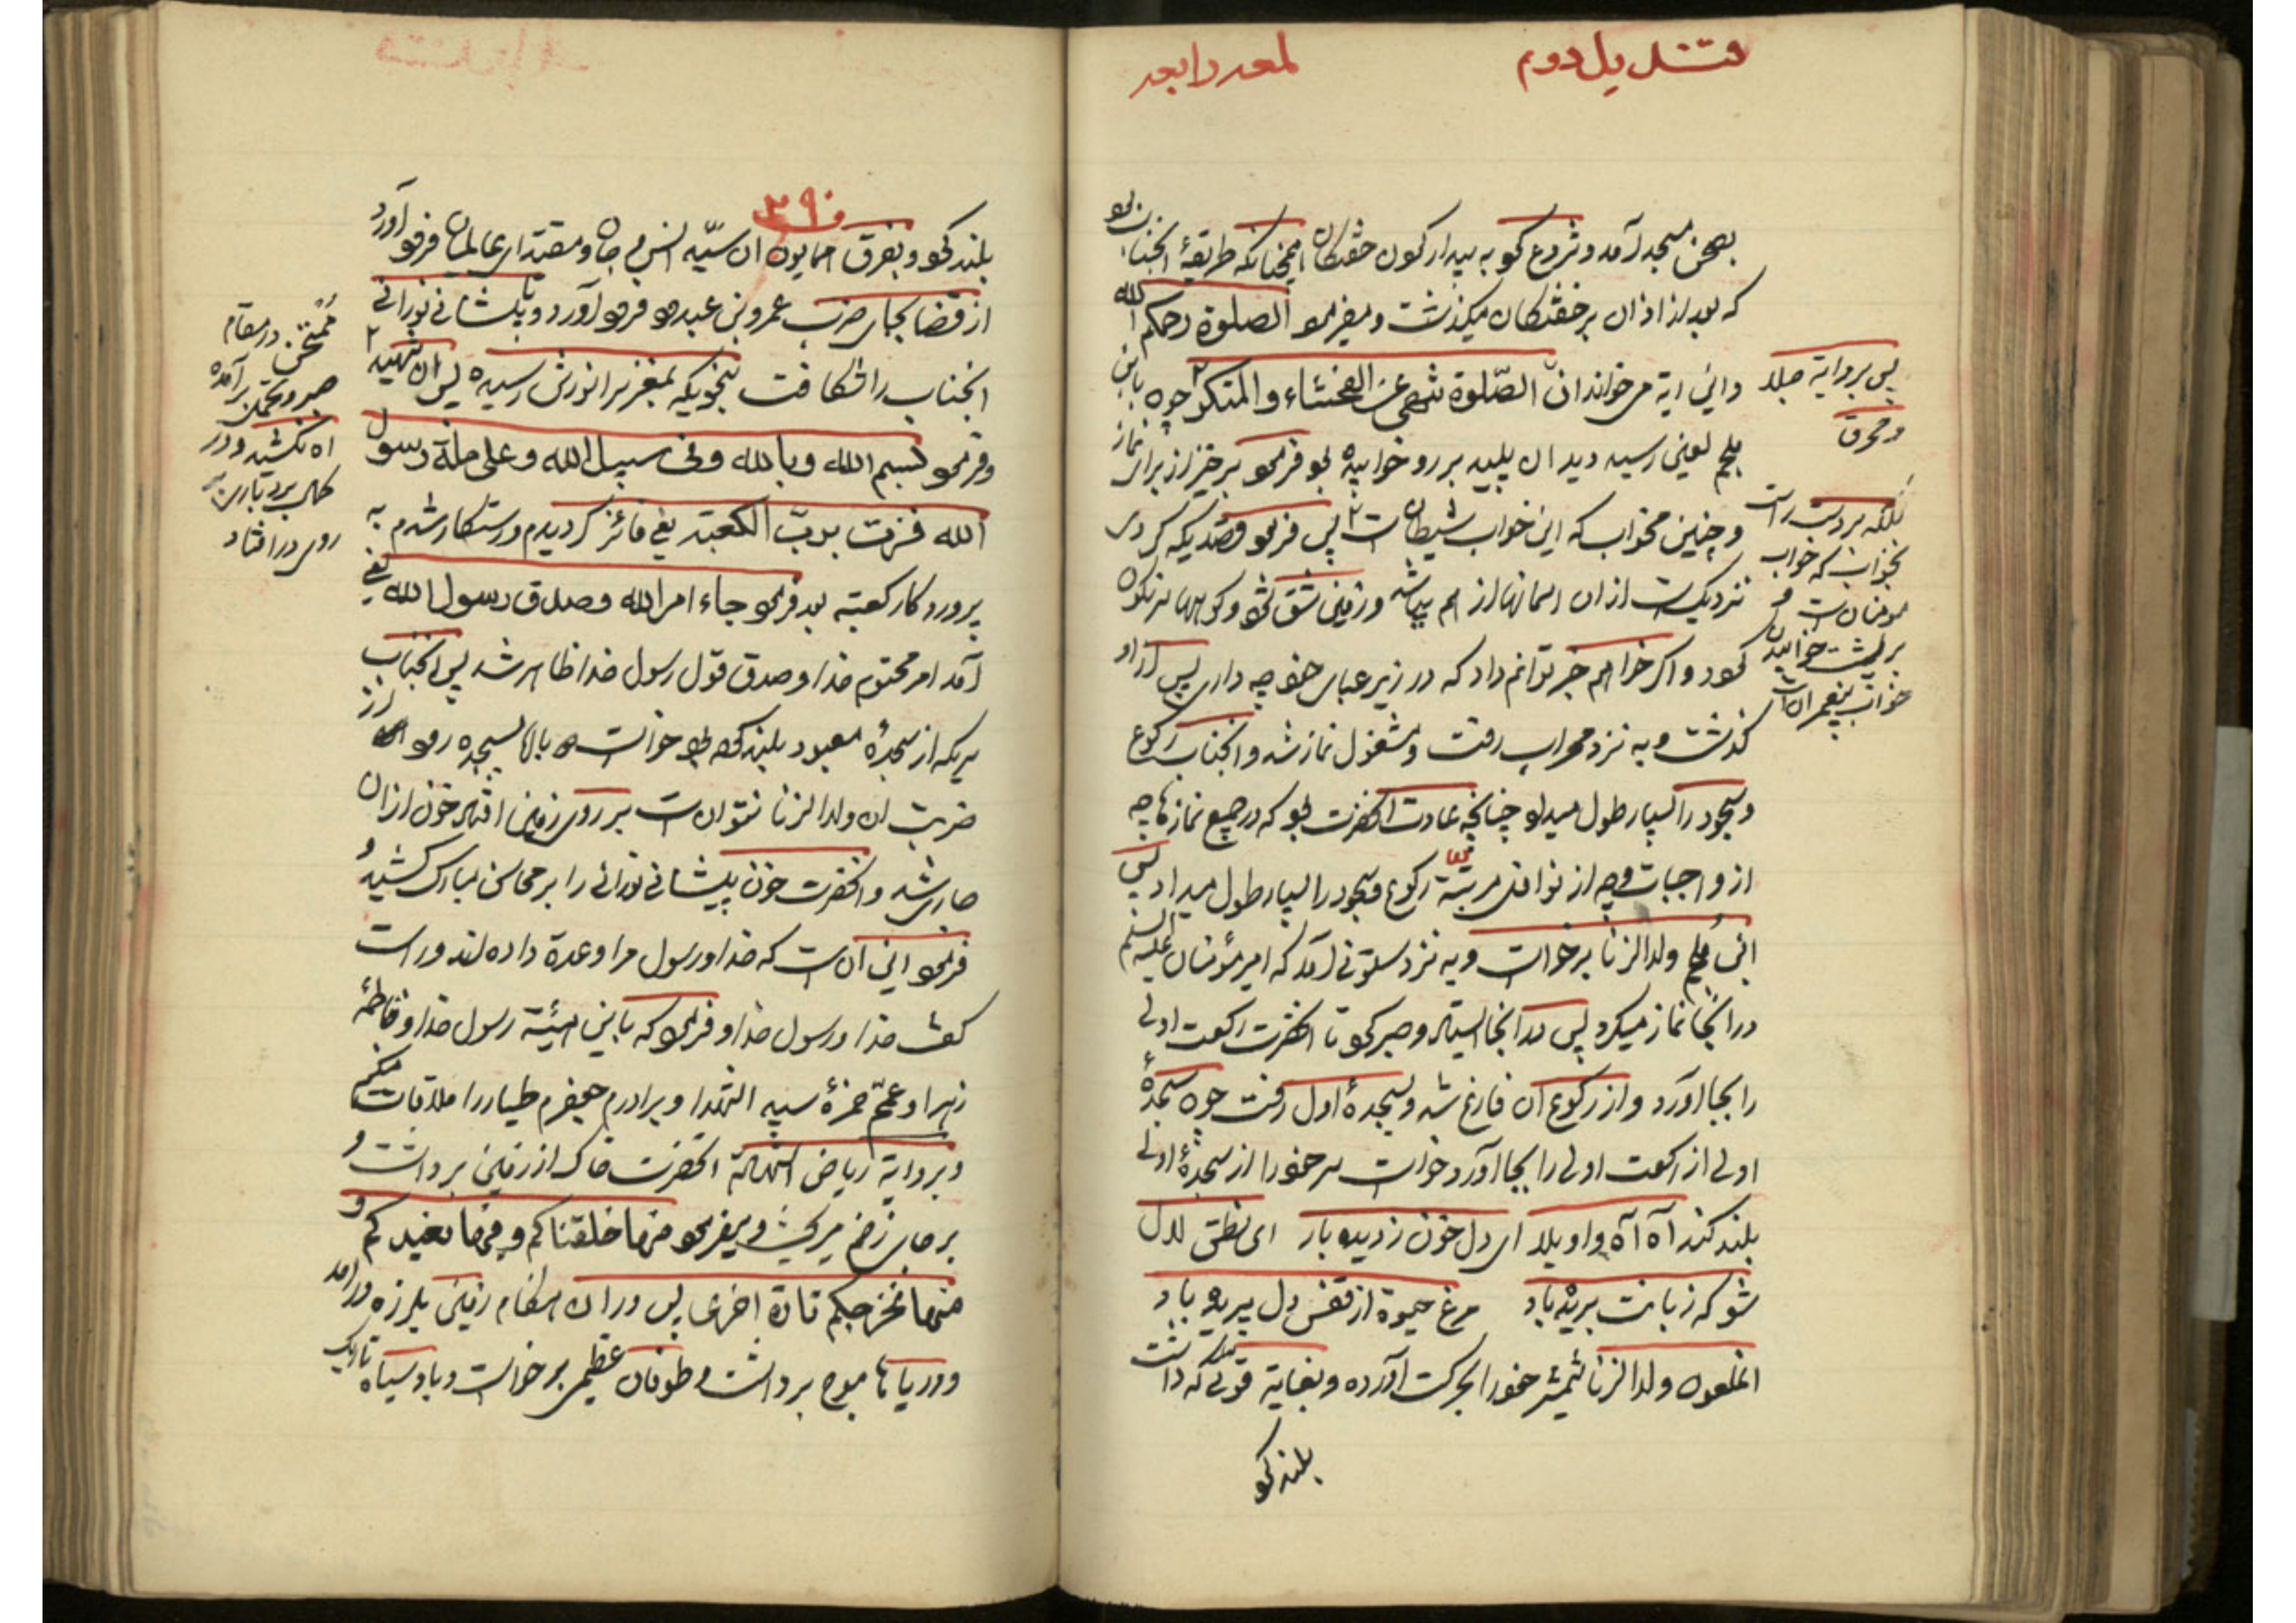 قندیل دوم
لمعه رابعه
بصحن مسجد آمد و شروع نمود به بیدار کردن خفتگان همچنانکه طریقهٔ انجناب بود
که بعد از اذان بر خفتگان میگذشت و میفرمود الصلوة رحمکم الله
و این ایه می‌خواند ان الصّلوة تنهی عن الفحشاء والمنکر چون باین
ملجم لعین رسید دید ان پلید بر رو خوابیده بود فرمود برخیز از برای نماز
و چنین مخواب که این خواب شیطان است پس فرمود قصدیکه کردی
نزدیکست از ان اسمانها از هم بپاشد و زمین شق شود و کوهها سرنگون
گردد و اگر خواهم خبر توانم داد که در زیر عبای خود چه داری پس از او
گذشت و به نزد محراب رفت و مشغول نماز شد و انجناب رکوع
و سجود را بسیار طول میداد چنانچه عادت انحضرت بود که در جمیع نمازها چه
از واجبات و چه از نوافل مرتبّه رکوع و سجود را بسیار طول میداد پس
ابن ملجم ولدالزنا برخواست و به نزد ستونی آمد که امیر مؤمنان علیه السلم
در انجا نماز میکرد پس در انجا ایستاد و صبر کرد تا انحضرت رکعت اولی
را بجا اورد و از رکوع ان فارغ شد و بسجدهٔ اول رفت چون سجدهٔ
اولی از رکعت اولی را بجا آورد خواست سر خود را از سجدهٔ اولی
بلند کند آه آه واویلا ای دل خون ز دیده بار ای نطق لال
شو که زبانت بریده باد مرغ حیوة از قفس دل پریده باد
انملعون ولدالزنا شمشیر خود را بحرکت آورده و بغایة قوتی که داشت
بلند کرد
پس بروایة جلد
و محرق
بلکه بر دست راست
بخواب که خواب
مومنان است و
بر پشت خوابیدن
خواب پیغمبران است
۳۹۰
بلند کرد و بفرق همایون ان سیّد انس و جان و مقتدای عالمان فرود آورد
از قضا بجای ضربت عمرو بن عبدود فرود آورد و تا پیشانی نورانی
انجناب را شکافت بنحویکه بمغز سر انورش رسید پس ان شهید
و فرمود بسم الله و بالله و فی سبیل الله و علی ملة رسول
الله فزت برب الکعبة یعنی فائز گردیدم و رستگار شدم به
پروردگار کعبه بعد فرمود جاء امر الله و صدق رسول الله یعنی
آمد امر محتوم خدا و صدق قول رسول خدا ظاهر شد پس انجناب
سریکه از سجدهٔ معبود بلند کرده بود خواست بالا بسجده رود از
ضربت ان ولدالزنا نتوانست بر روی زمین افتاد خون ازان
جاری شد و انحضرت خون پیشانی نورانی را بر محاسن مبارک کشید و
فرمود این ان است که خدا و رسول مرا وعدة داده‌اند و راست
گفت خدا و رسول خدا و فرمود که باین هیئة رسول خدا و فاطمهٔ
زهرا و عمّم حمزهٔ سید الشهدا و برادرم جعفر طیار را ملاقات میکنم
و بروایة ریاض الشهادة انحضرت خاک از زمین برداشت و
بر جای زخم میریخت و میفرمود منها خلقناکم و فیها نعیدکم و
منها نخرجکم تارة اخری پس در ان هنگام زمین بلرزه درامد
و دریاها بموج برداشت و طوفان عظیمی برخواست و باد سیاه تاریک
ممتحن در مقام
صبر و تحمل برآمده
اه نکشید و در
کمال بردباری
روی در افتاد